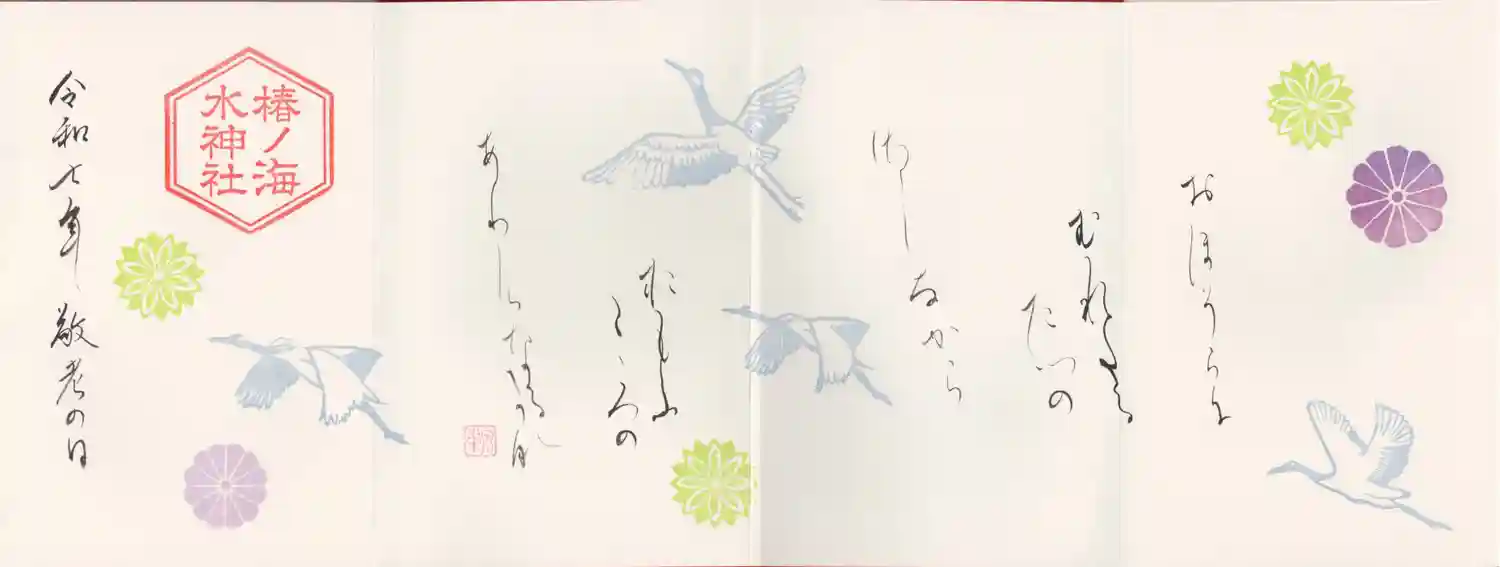 おほそらに
むれたる
たつの
さし
なから
おもふ
こゝろの
ありけなるかな
椿ノ海
水神社
令和七年 敬老の日